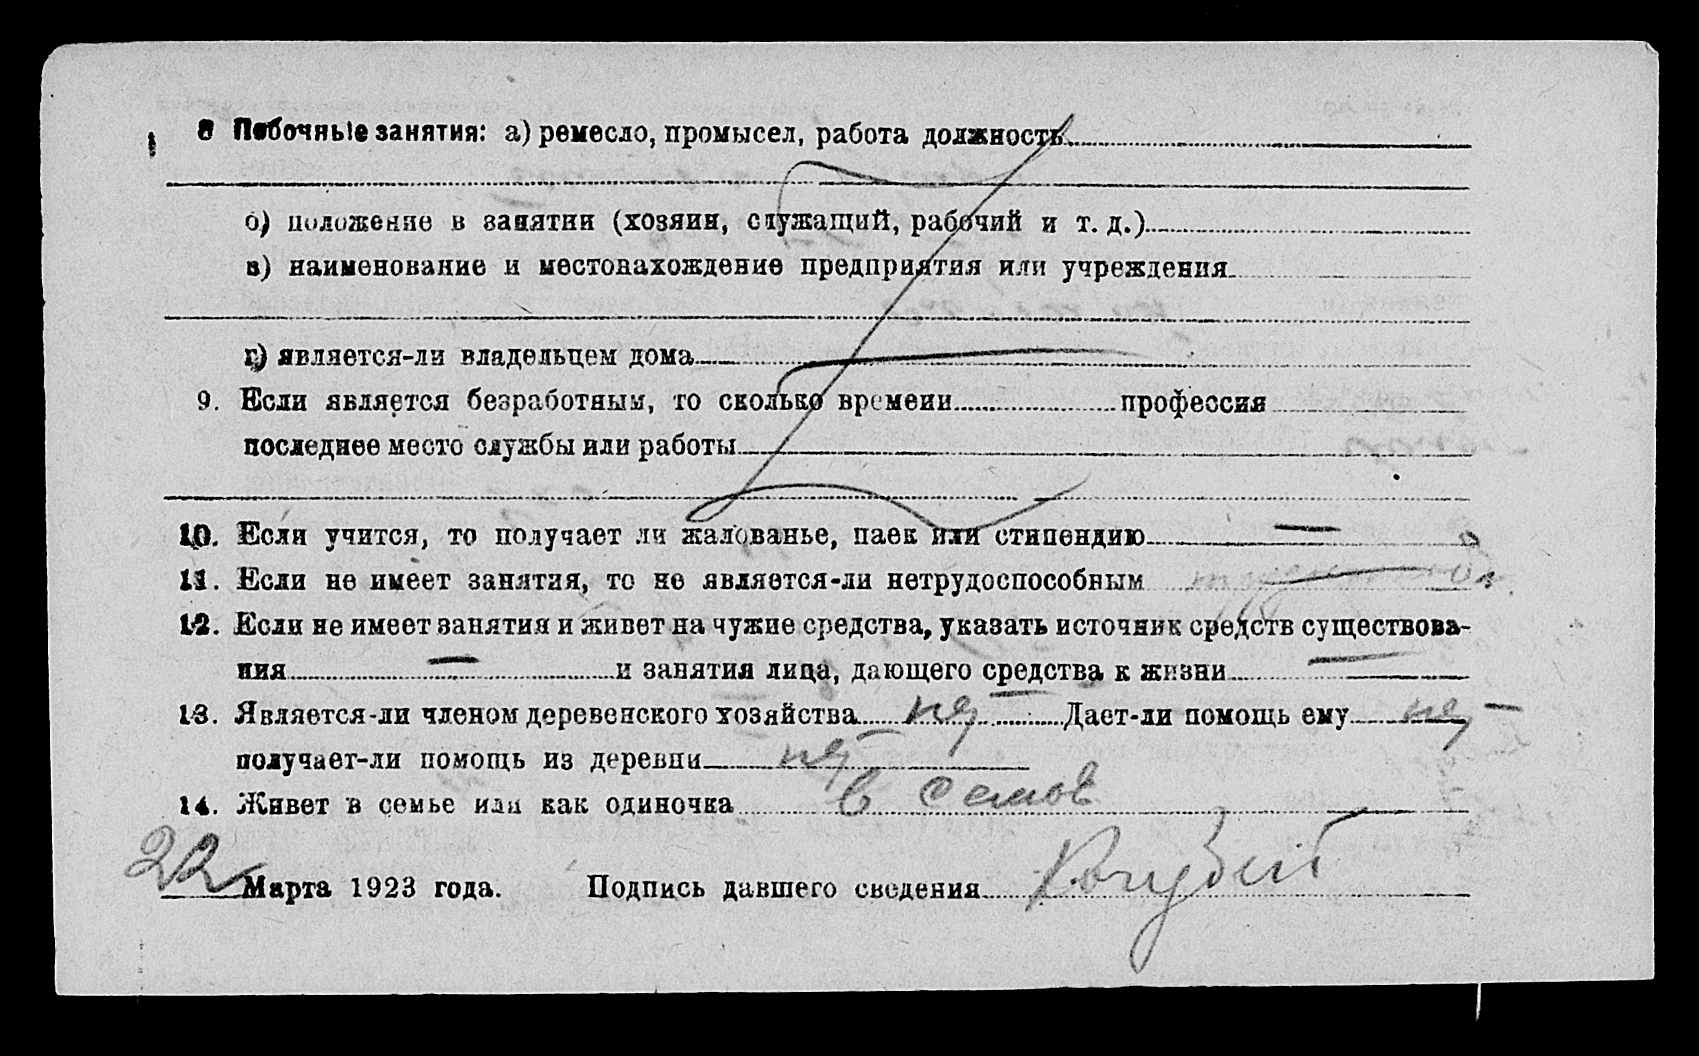 8 Побочные занятия: а) ремесло, промысел, работа должность
б) положение в занятии (хозяин, служащий, рабочий и т. д.)
в) наименование и местонахождение предприятия или учреждения
г) является-ли владельцем дома —
9. Если является безработным, то сколько времени профессия
последнее место службы или работы
10. Если учится, то получает ли жалованье, паек или стипендию —
11. Если не имеет занятия, то не является-ли нетрудоспособным
12. Если не имеет занятия и живет на чужие средства, указать источник средств существова-
ния — и занятия лица, дающего средства к жизни —
13. Является-ли членом деревенского хозяйства нет Дает-ли помощь ему нет
получает-ли помощь из деревни нет
14. Живет в семье или как одиночка в семье
22 Марта 1923 года. Подпись давшего сведения